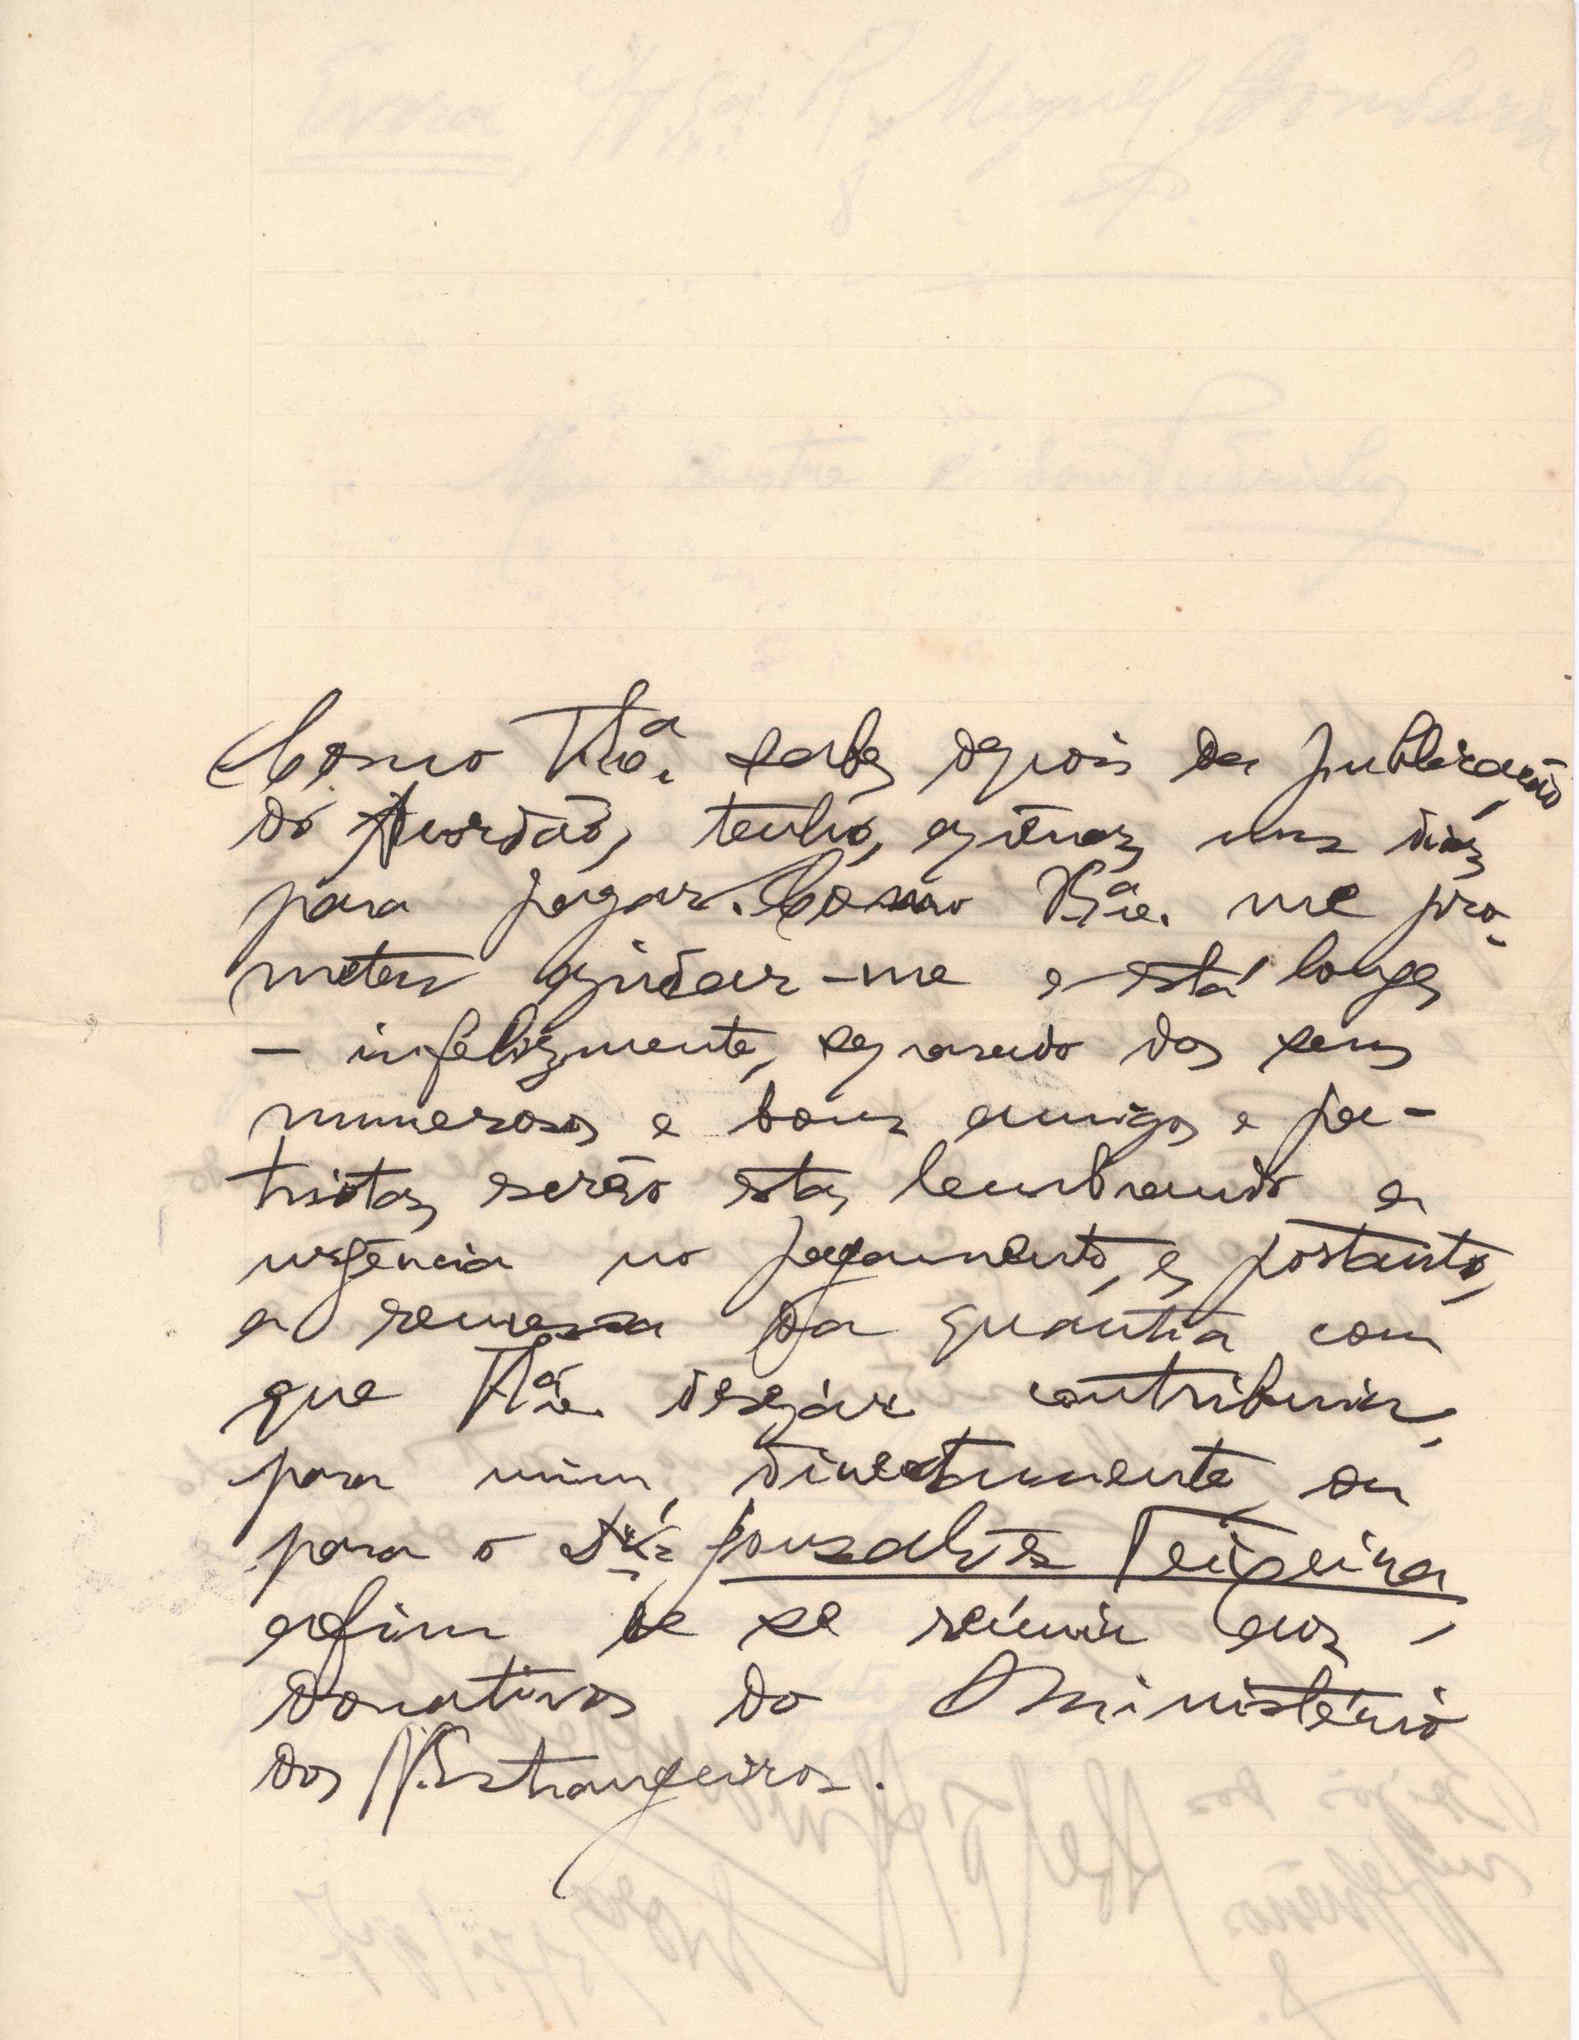 Como V. Exa. sabe, depois da publicação
do Acordão, tenho, apenas, uns dias
para pagar. Como V. Exa. me pro-
meteu ajudar-me e está longe
— infelizmente, separado dos seus
numerosos e bons amigos e pa-
triotas, escrevo esta, lembrando a
urgência no pagamento, e, portanto,
a remessa da quantia com
que V. Exa. desejar contribuir,
para mim, directamente, ou
para o Dr. Gonsalves Teixeira
afim de se reúnir aos
donativos do Ministério
dos N. Estrangeiros.